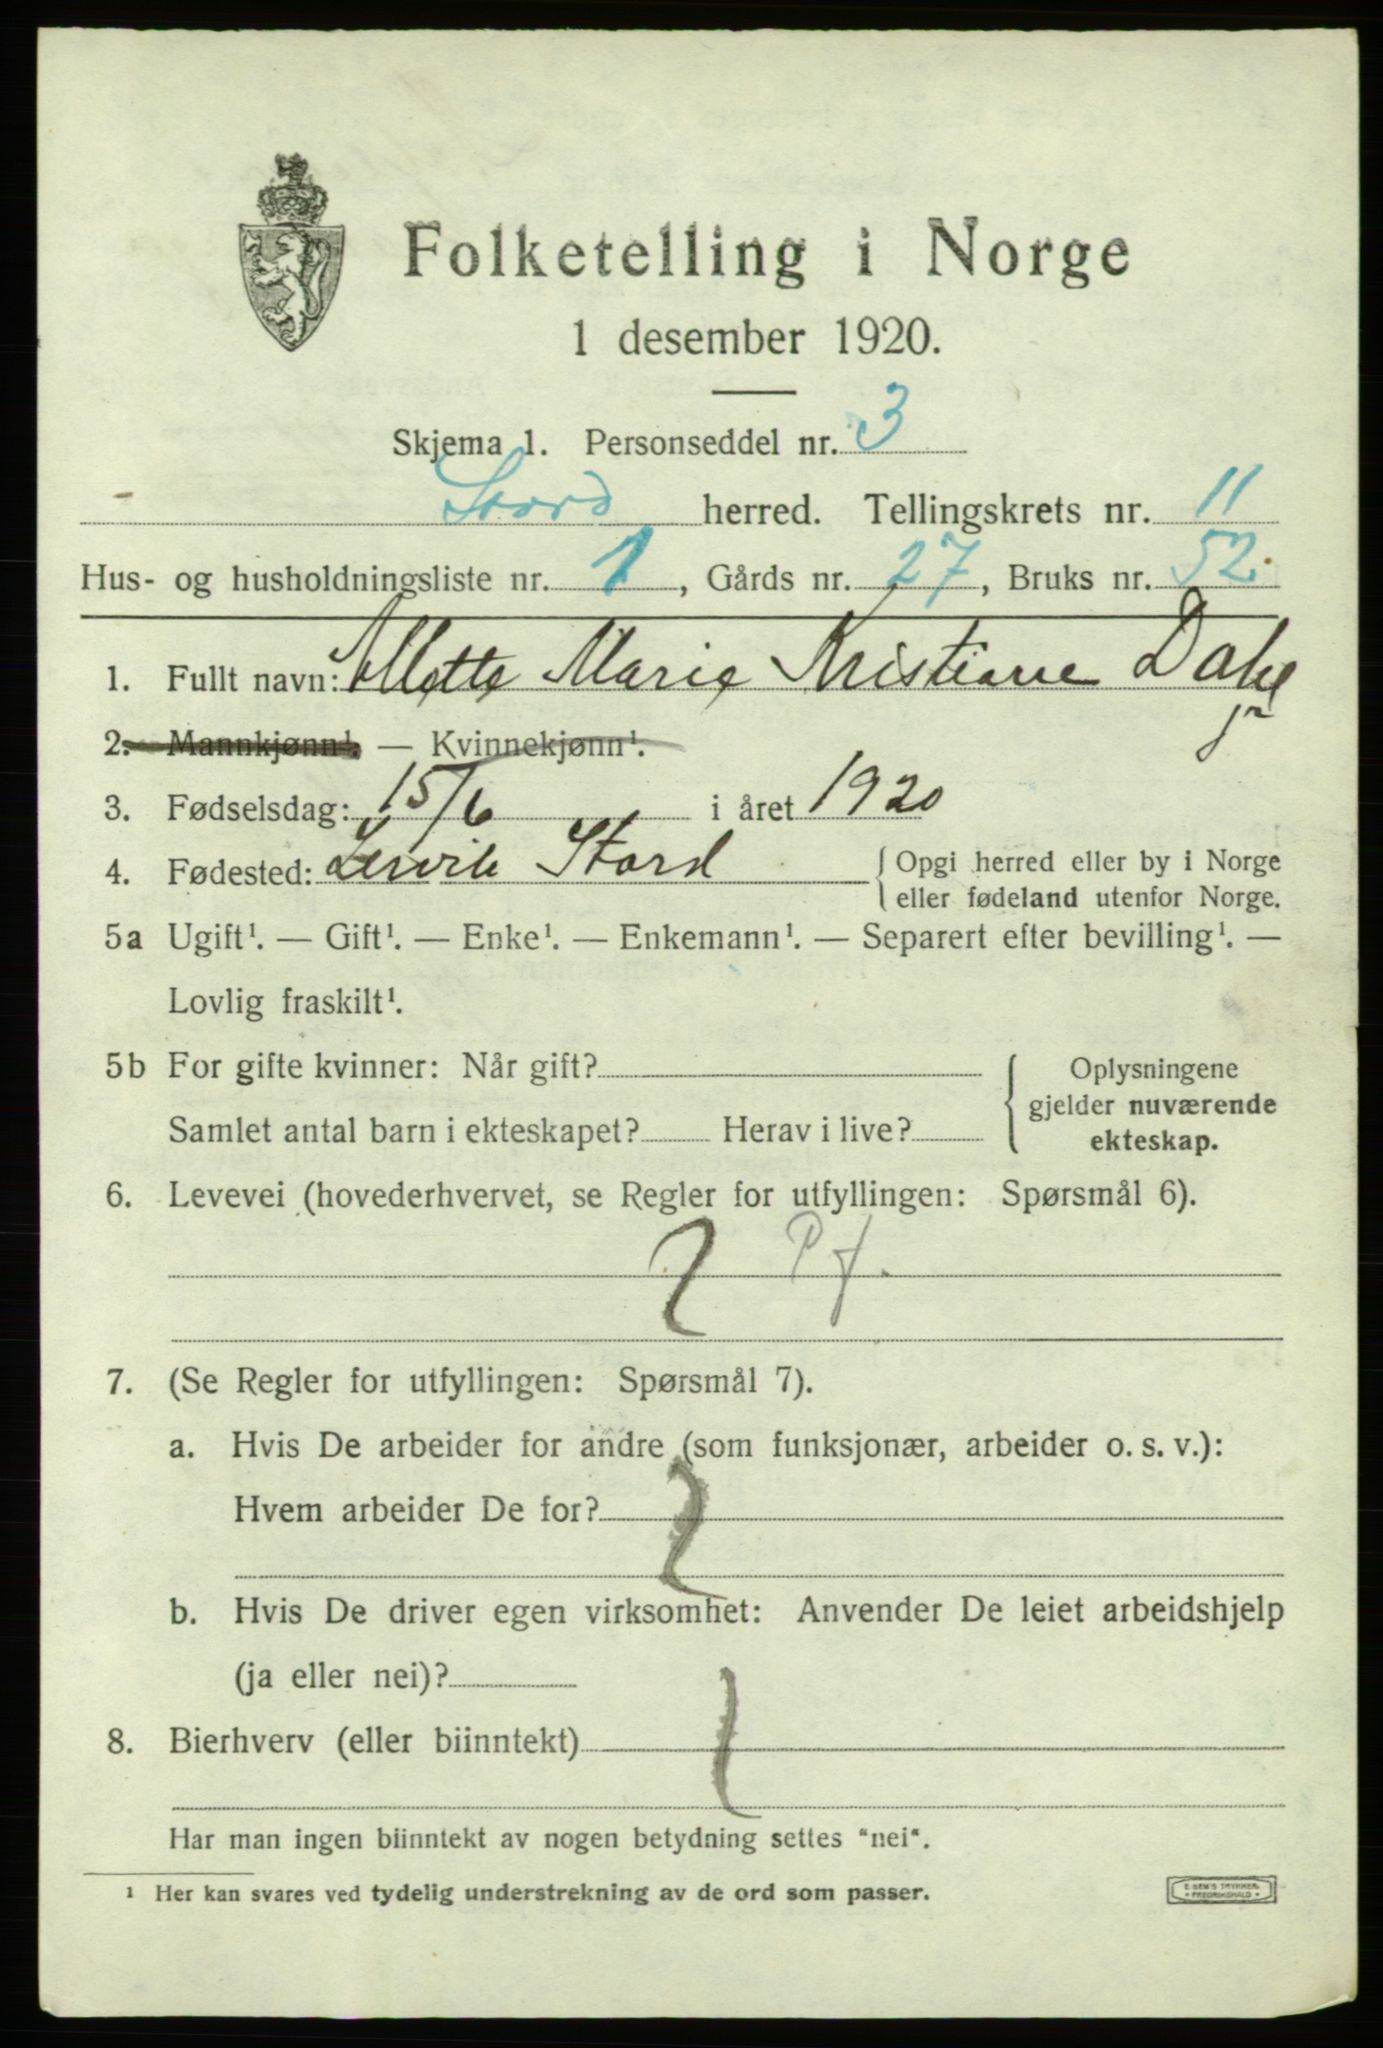 Folketelling i Norge
1 desember 1920.
Skjema 1. Personseddel nr. 3
Stord herred. Tellingskrets nr. 11
Hus- og husholdningsliste nr. 1, Gårds nr. 27, Bruks nr. 52.
1. Fullt navn: Mette Marie Kristiane Dahl
jr
2. Mannkjønn¹. — Kvinnekjønn¹.
3. Fødselsdag: 15/6 i året 1920
4. Fødested: Lervik Stord { Opgi herred eller by i Norge
eller fødeland utenfor Norge.
5a Ugift¹. — Gift¹. — Enke¹. — Enkemann¹. — Separert efter bevilling¹. —
Lovlig fraskilt¹.
5b For gifte kvinner: Når gift? { Oplysningene
gjelder nuværende
Samlet antal barn i ekteskapet? Herav i live?
ekteskap.
6. Levevei (hovederhvervet, se Regler for utfyllingen: Spørsmål 6).
Pf.
7. (Se Regler for utfyllingen: Spørsmål 7).
a. Hvis De arbeider for andre (som funksjonær, arbeider o. s. v.):
Hvem arbeider De for?
b. Hvis De driver egen virksomhet: Anvender De leiet arbeidshjelp
(ja eller nei)?
8. Bierhverv (eller biinntekt)
Har man ingen biinntekt av nogen betydning settes "nei".
¹ Her kan svares ved tydelig understrekning av de ord som passer.
E. SEM'S TRYKKERI
FREDRIKSHALD